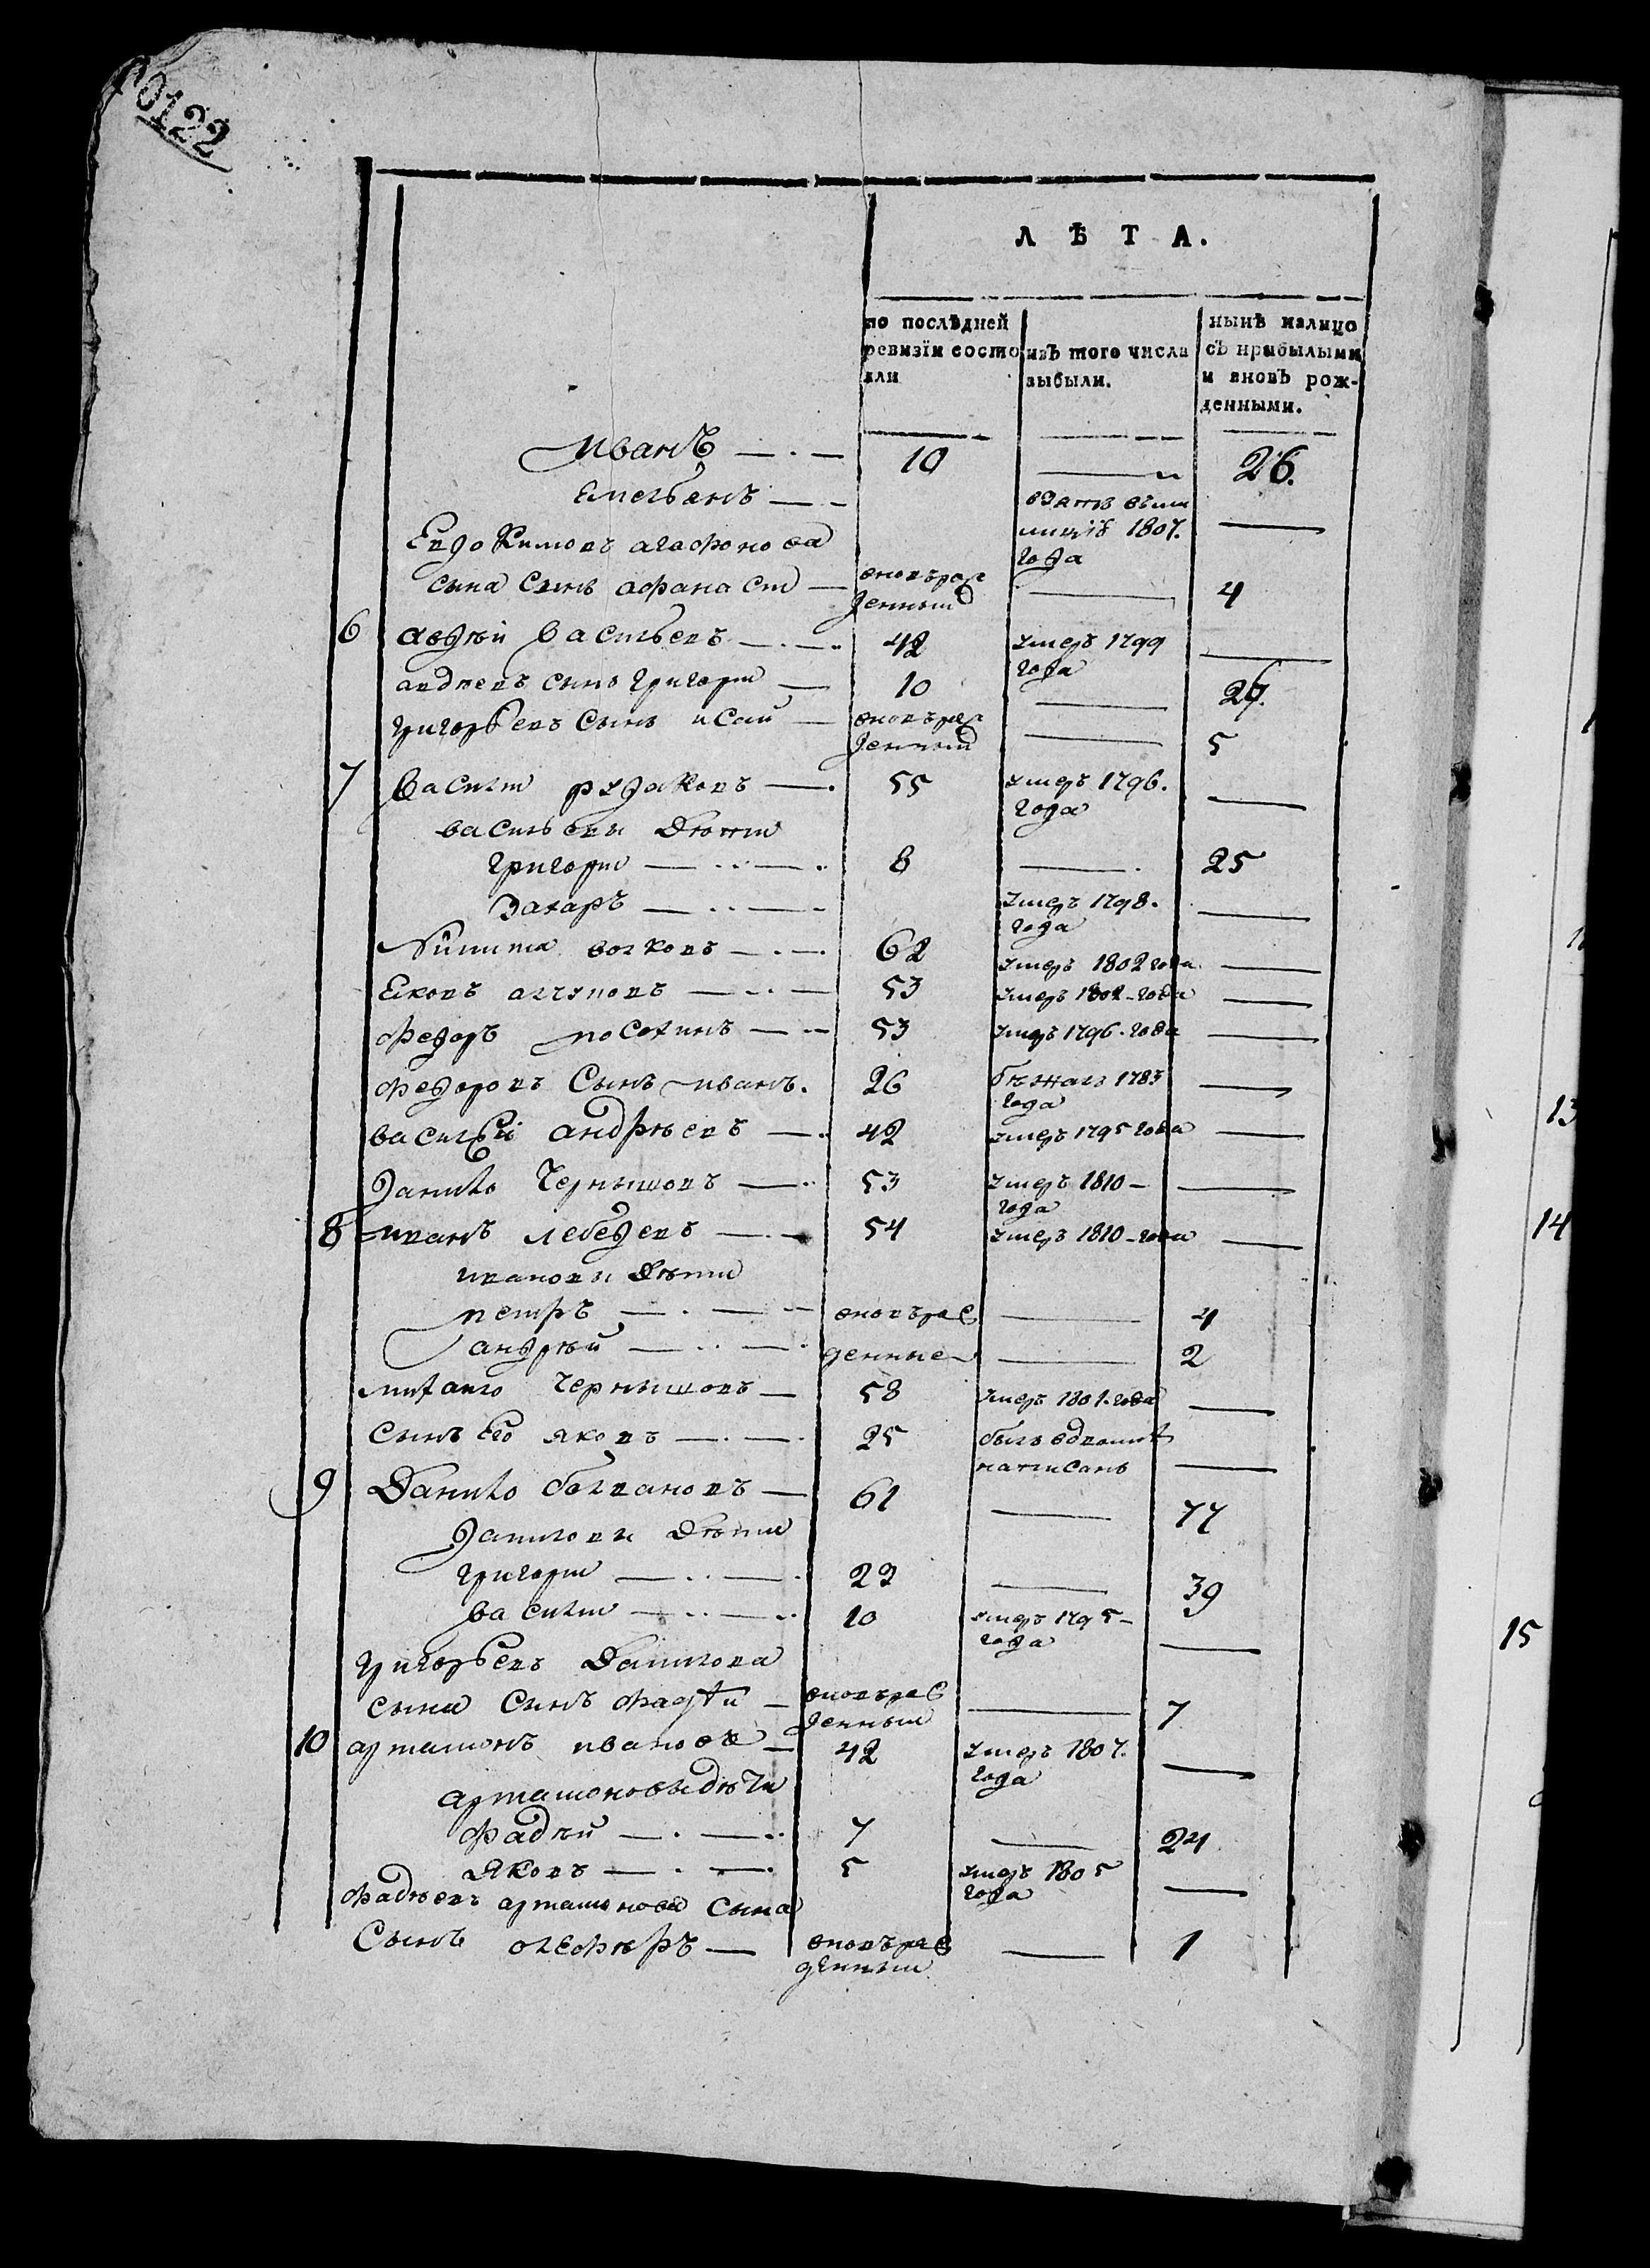 00122
ЛѢТА.
по послѣдней ревизїи состояли
изъ того числа выбыли.
нынѣ налицо съ прибылыми и вновь рожденными.
Иванъ 10 26.
Емельянъ
въ мили
лицїѣ 1807. года
Евдокимовъ агафонова
сына сынъ афанаси вновь рожденный 4
6 авдѣи васильевъ 42 умеръ 1799 года
авдѣевъ сынъ григори 10 27.
григорьевъ сынъ исаи вновь рожденный 5
7 василеи рудаковъ 55 умеръ 1796. года
васильевы дѣти
григори 8 25
Захаръ умеръ 1798. года
Никита волковъ 62 умеръ 1802 года
Яковъ 53 умеръ 1802 года
федоръ 53 умеръ 1796. года
федоровъ сынъ иванъ. 26 бѣжалъ 1783 года
василей андрѣевъ 42 умеръ 1795 года
Данило Чернышовъ 53 умеръ 1810 года
8 иванъ лебедевъ 54 умеръ 1810 года
ивановы дѣти
петръ вновь рож 4
андрѣй денные 2
михаило Чернышовъ 58 умеръ 1801. года
сынъ Его яковъ 25 былъ написанъ
9 Данило 61 77
Даниловы дѣти
григори 22 39
василеи 10 умеръ 1795 года
григорьевъ Данилова
сына сынъ фадѣи вновь рожденныи 7
10 артамонъ ивановъ 42 умеръ 1807. года
артамоновы дѣти
фадѣй 7 24
Яковъ 5 умеръ 1805 года
фадѣевъ артамонова сына
Сынъ вновь рожденныи 1
13
14
15